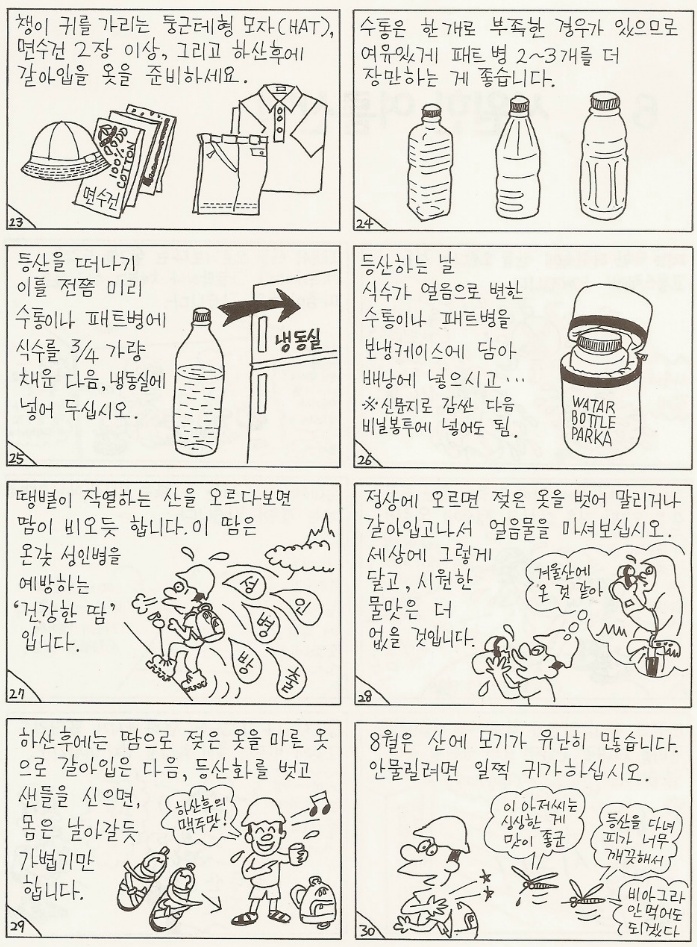 챙이 귀를 가리는 둥근테형 모자(HAT),
면수건 2장 이상, 그리고 하산후에
갈아입을 옷을 준비하세요.
100%
COTTON
면수건
23
수통은 한개로 부족한 경우가 있으므로
여유있게 패트병 2~3개를 더
장만하는 게 좋습니다.
24
등산을 떠나기
이틀 전쯤 미리
수통이나 패트병에
식수를 3/4 가량
채운 다음, 냉동실에
넣어 두십시오.
냉동실
25
등산하는 날
식수가 얼음으로 변한
수통이나 패트병을
보냉케이스에 담아
배낭에 넣으시고…
※신문지로 감싼 다음
비닐봉투에 넣어도 됨.
WATAR
BOTTLE
PARKA
26
땡볕이 작열하는 산을 오르다보면
땀이 비오듯 합니다. 이 땀은
온갖 성인병을
예방하는
'건강한 땀'
입니다.
성
인
병
방
출
27
정상에 오르면 젖은 옷을 벗어 말리거나
갈아입고나서 얼음물을 마셔보십시오.
세상에 그렇게
달고, 시원한
물맛은 더
없을 것입니다.
겨울산에
온 것 같아
28
하산후에는 땀으로 젖은 옷을 마른 옷
으로 갈아입은 다음, 등산화를 벗고
샌들을 신으면,
몸은 날아갈듯
가볍기만
합니다.
하산후의
맥주맛!
29
8월은 산에 모기가 유난히 많습니다.
안물릴려면 일찍 귀가하십시오.
이 아저씨는
싱싱한 게
맛이 좋군
등산을 다녀
피가 너무
깨끗해서
비아그라
안 먹어도
되겠다
30